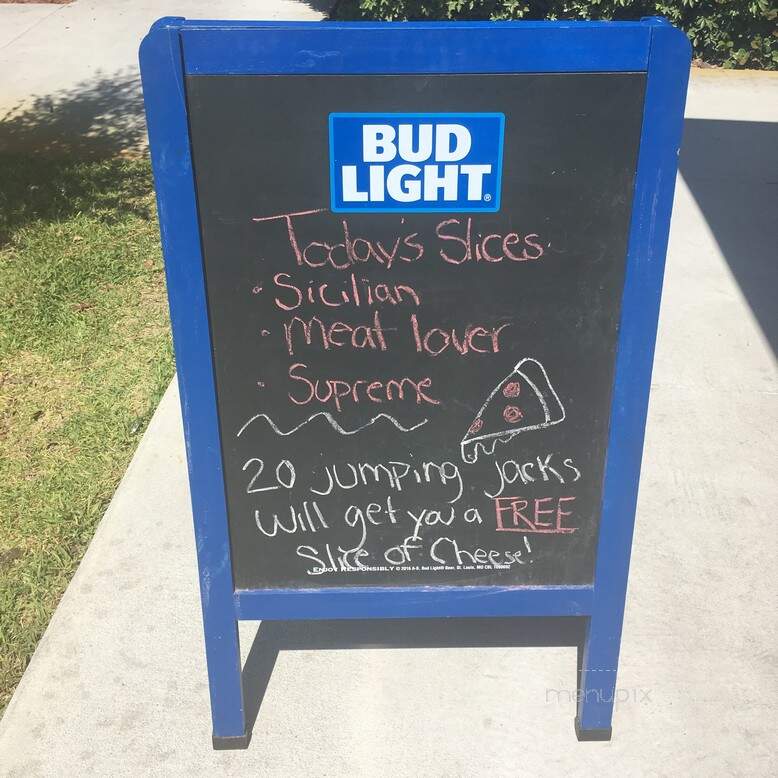 BUD
LIGHT®
Today's Slices
• Sicilian
• meat lover
• Supreme
20 jumping jacks
will get you a FREE
Slice of Cheese!
ENJOY RESPONSIBLY © 2016 A-B, Bud Light® Beer, St. Louis, MO
menupix